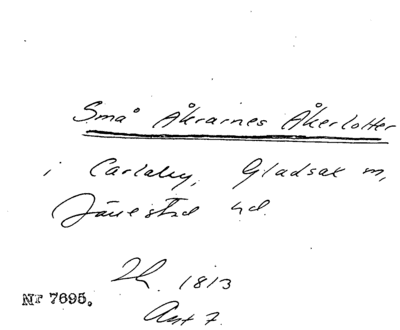 Små Åkrarnes Åkerlotter
i Carlaby, Gladsax m,
Järrestad hd.
1813
Nr 7695.
Akt 7.